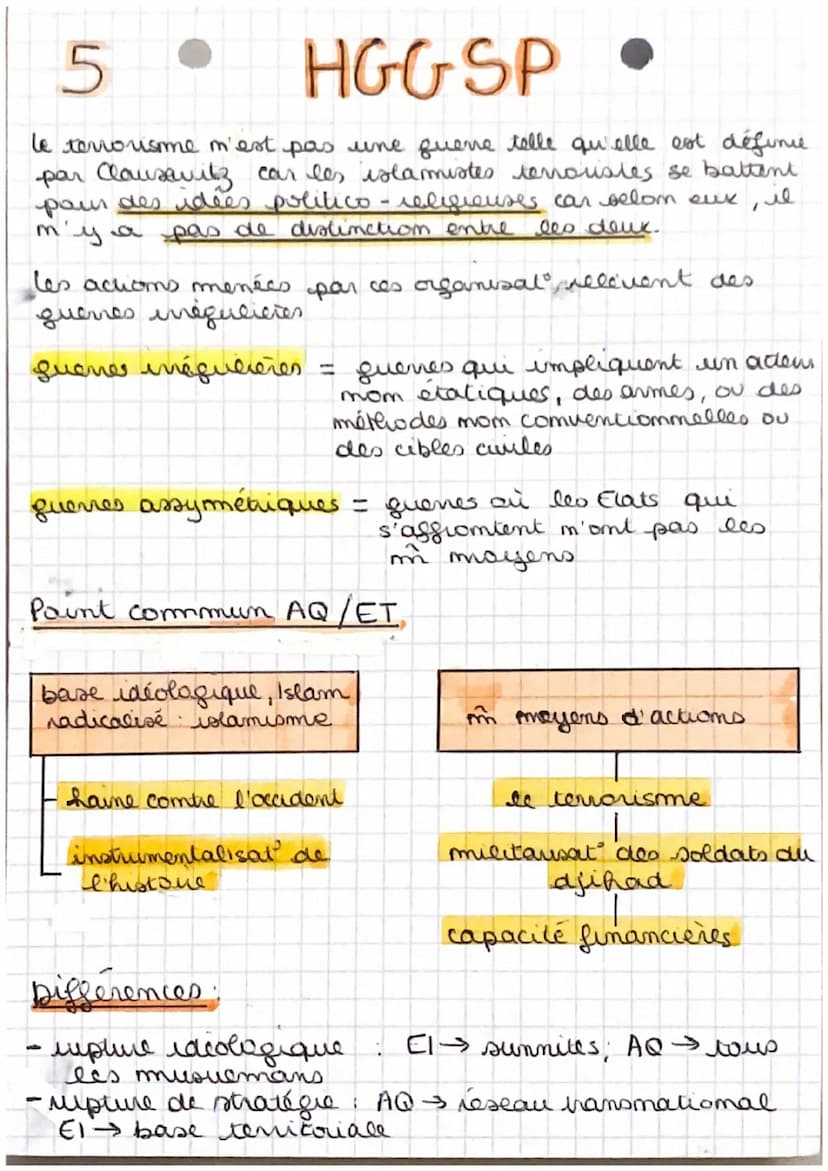 5 HGGSP
le terrorisme n'est pas une guerre telle qu'elle est définie
par Clausewitz car les islamistes terroristes se battent
pour des idées politico-religieuses car selon eux, il
n'y a pas de distinction entre les deux.
Les actions menées par ces organisat°, relèvent des
guerres irrégulières
guerres irrégulières = guerres qui impliquent un acteur
non étatiques, des armes, ou des
méthodes non conventionnelles ou
des cibles civiles
guerres assymétriques = guerres où les Etats qui
s'affrontent n'ont pas les
m̂ moyens
Point commun AQ/ET
base idéologique, Islam
radicalisé : islamisme
m̂ moyens d'actions
haine contre l'occident
le terrorisme
instrumentalisat° de
l'histoire
militarisat° des soldats du
djihad
capacité financières
Différences :
- rupture idéologique : EI → sunnites; AQ → tous
les musulmans
- rupture de stratégie : AQ → réseau transnational
EI → base territoriale